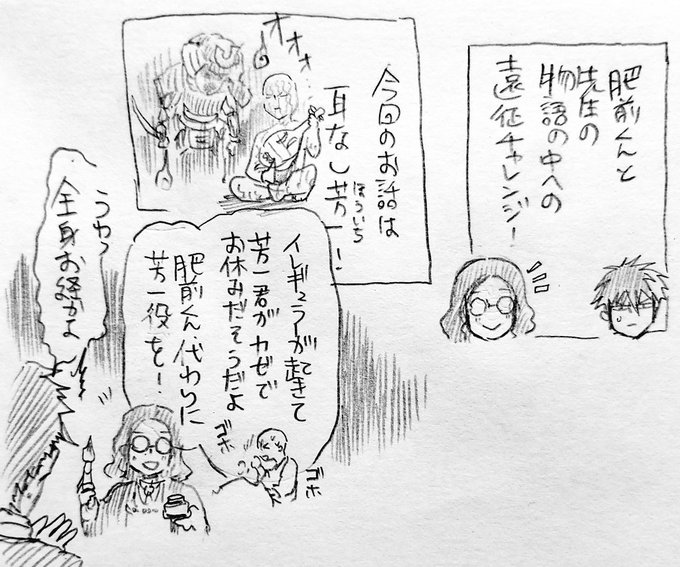 肥前くんと
先生の
物語の中への
遠征チャレンジ!
今回のお話は
耳なし芳一!
ほういち
オオォ
イレギュラーが起きて
芳一君がカゼで
お休みだそうだよ
肥前くん、代わりに
芳一役を!
ゴホ
ゴホ
うわっ
全身お経かよ